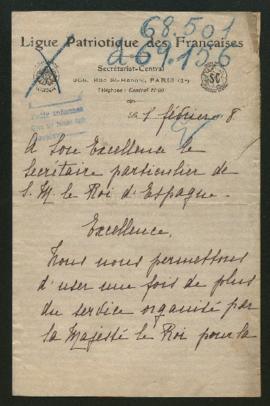 68.501
à 69.156
Ligue Patriotique des Françaises
Secrétariat-Central
Rue St-Honoré, PARIS
Téléphone: Central
1 février 8
A Son Excellence le
Secrétaire particulier de
S. M. le Roi d'Espagne.
Excellence,
Nous nous permettons
d'user une fois de plus
du service organisé par
Sa Majesté le Roi pour la